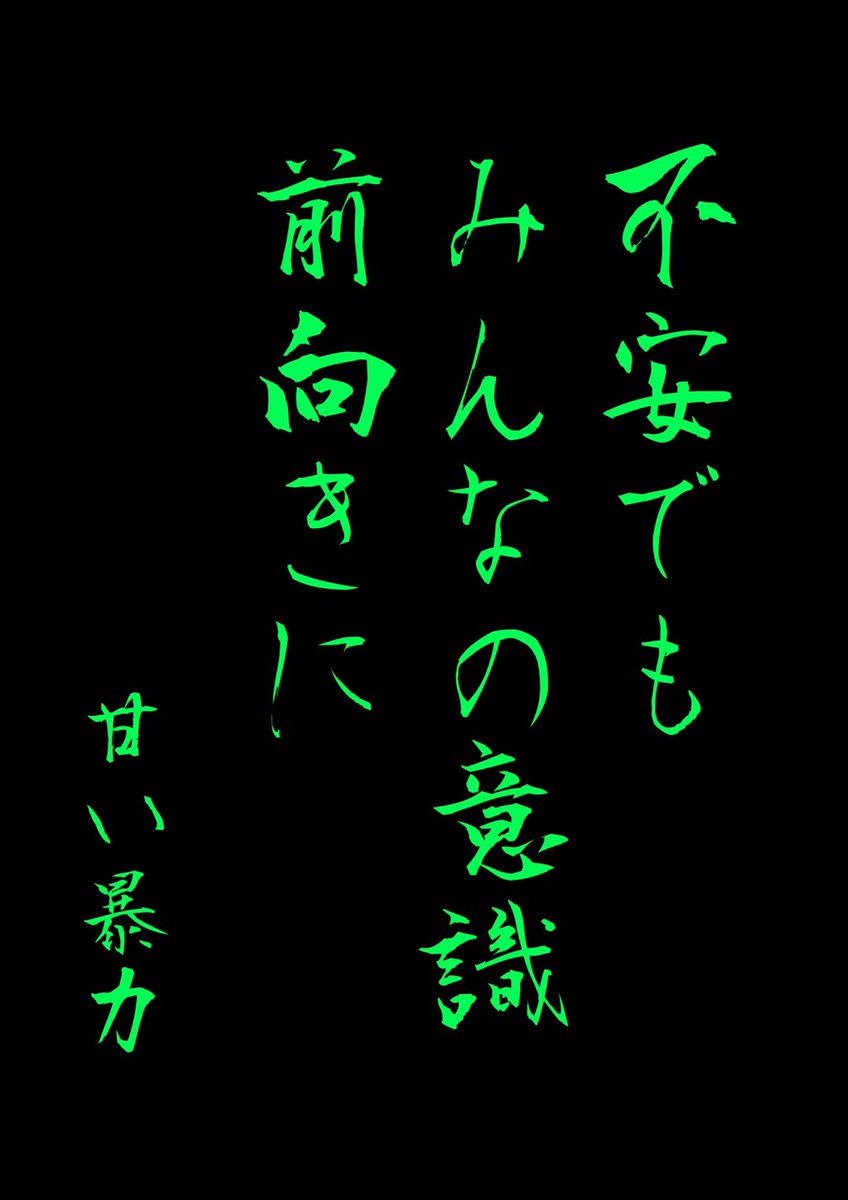 不安でも
みんなの意識
前向きに
甘い暴力